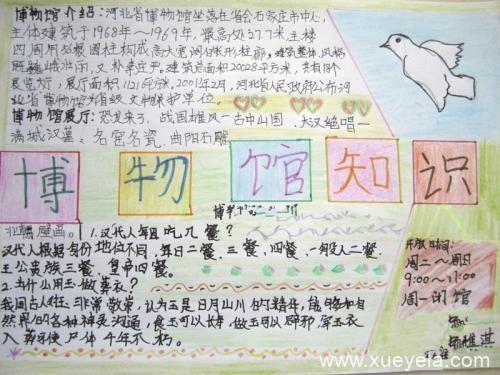 博物馆介绍：河北省博物馆坐落在省会石家庄市中心，
主体建筑于1968年～1969年，最高处27.7米，主楼
四周用
根圆柱构成高大宽阔
柱廊，建筑整体风格
既
又朴素庄严。建筑总面积20028平方米，共有18个
展览厅，展厅面积
平方米，2001年2月，河北省人民政府公布河
北省博物馆为省级文物保护单位。
博物馆展厅：恐龙来了、战国雄风—古中山国、大汉绝唱—
满城汉墓、名窑名瓷、曲阳石雕
博物馆知识
北
壁画。1.汉代人每日吃几餐？
汉代人根据身份地位不同，每日二餐、三餐，四餐，一般人二餐
王公贵族三餐，皇帝四餐。
2.为什么用玉做葬衣？
我国古人对玉非常敬崇，认为玉是日月山川的精华，能够和自
然界的各种神灵沟通，食玉可以长寿，做玉可以辟邪，穿玉衣
入葬可使尸体千年不朽。
开放时间：
周二～周日
9:00～11:00
周一闭馆
www.xueyela.com